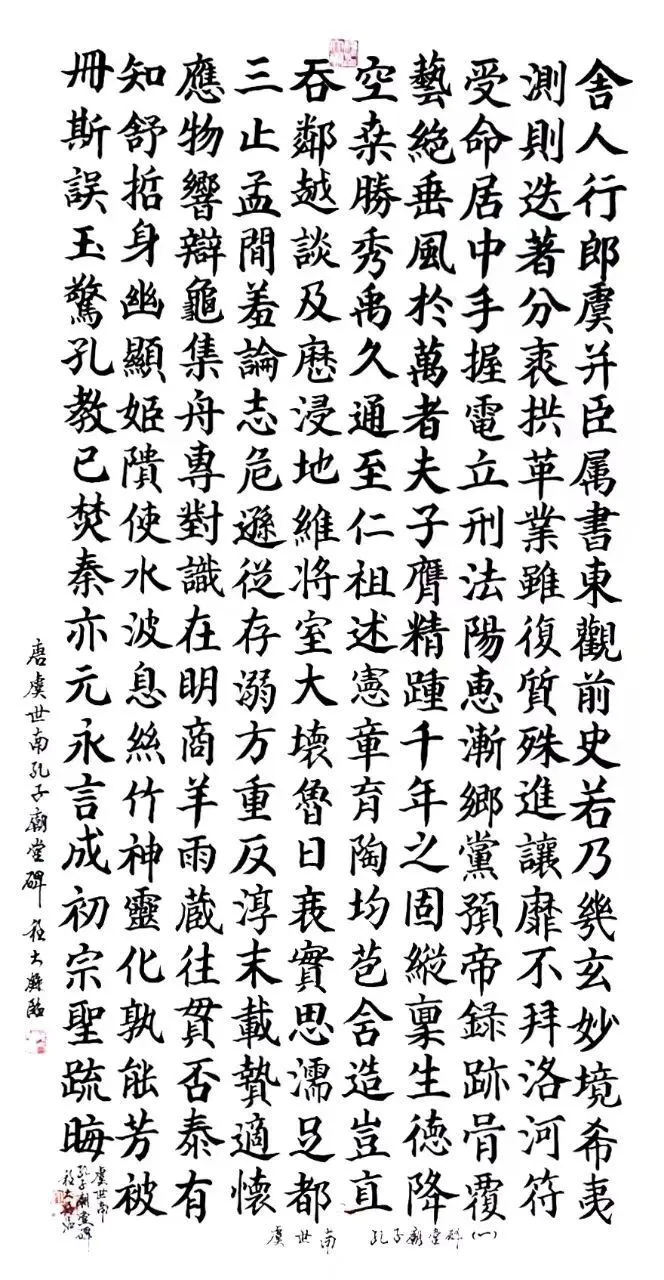 舍人行郎虞并臣属書東觀前史若乃幾玄妙境希夷
測則迭著分裘拱革業雖復質殊進讓靡不拜洛河符
受命居中手握電立刑法陽惠漸鄉黨預帝錄跡胥覆
藝絕垂風於萬者夫子膺精踵千年之固縱稟生德降
空桒勝秀禹久通至仁祖述憲章育陶均苞舍造豈直
吞鄰越談及歷浸地維將室大壞魯日衰實思濡足都
三止孟間羞論志危遜從存溺方重反淳末載贄適懷
應物響辯龜集舟專對識在明商羊雨蔵往貫否泰有
知舒哲身幽顯姬隤使水波息絲竹神靈化孰能芳被
冊斯誤玉驚孔教已焚秦亦元永言成初宗聖疏晦
虞世南
孔子廟堂碑
唐虞世南孔子廟堂碑 大臨
虞世南 孔子廟堂碑(一)